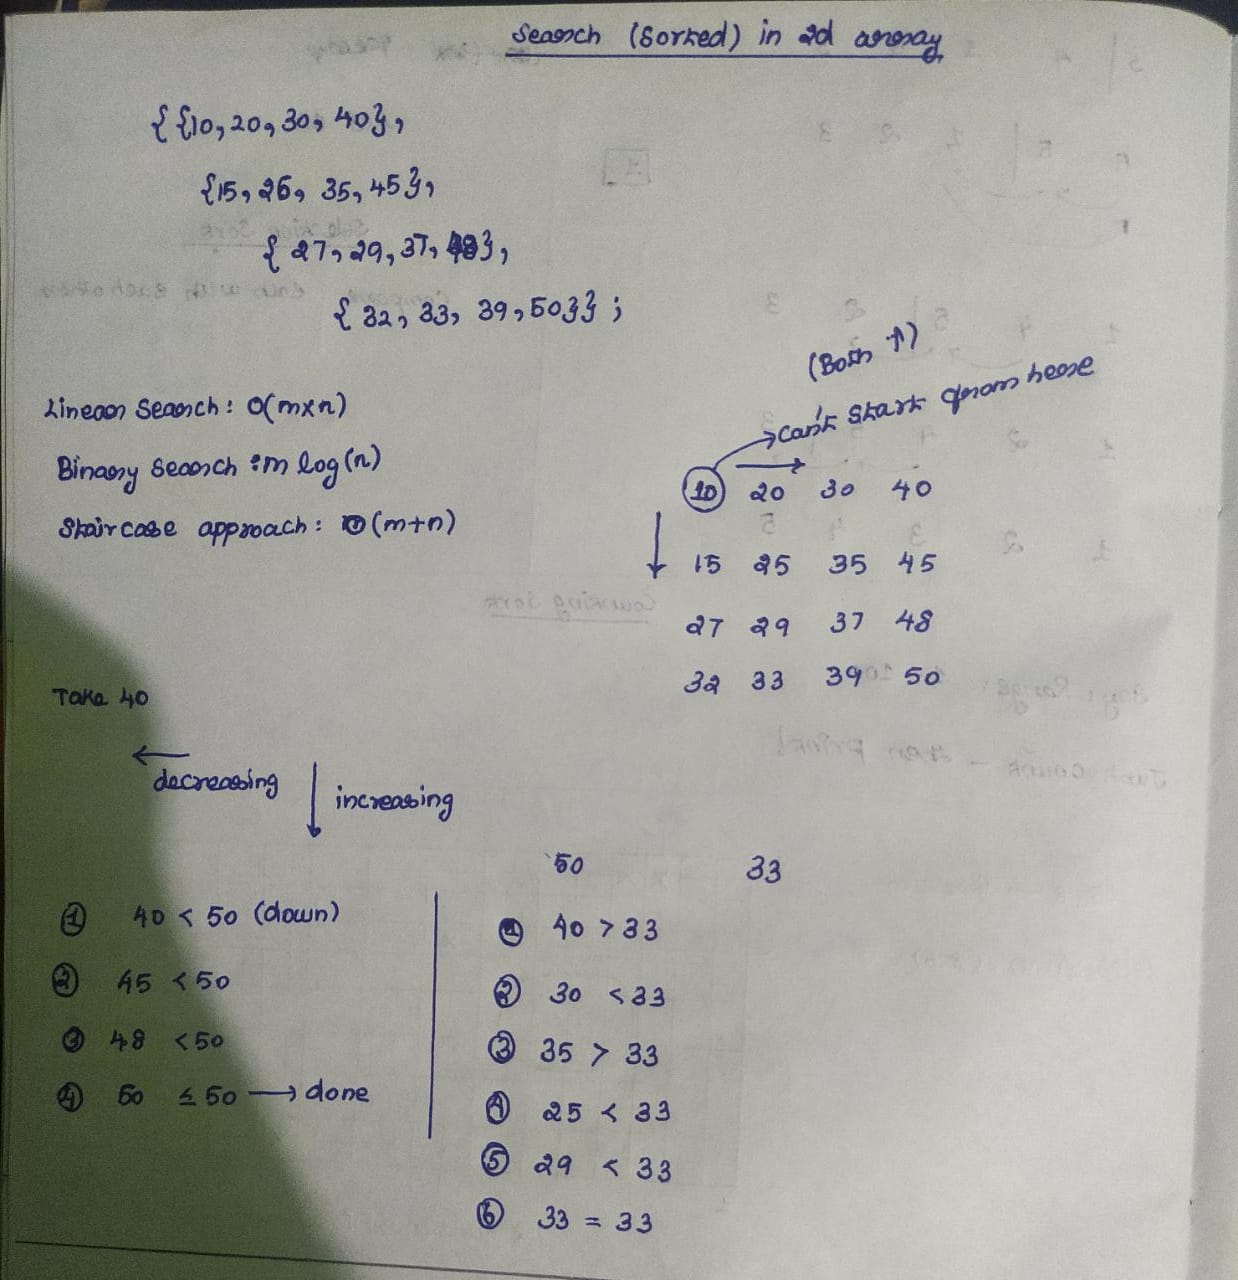 Search (Sorted) in 2d array
{{10, 20, 30, 40},
{15, 26, 35, 45},
{27, 29, 37, 48},
{32, 33, 39, 50}};
Linear Search: O(m×n)
Binary Search: m log(n)
Staircase approach: O(m+n)
(Both ↑)
can't start from here
10 → 20 30 40
↓ 15 25 35 45
27 29 37 48
32 33 39 50
Take 40
←
decreasing
↓ increasing
① 40 < 50 (down)
② 45 < 50
③ 48 < 50
④ 50 ≤ 50 → done
50 33
① 40 > 33
② 30 < 33
③ 35 > 33
④ 25 < 33
⑤ 29 < 33
⑥ 33 = 33